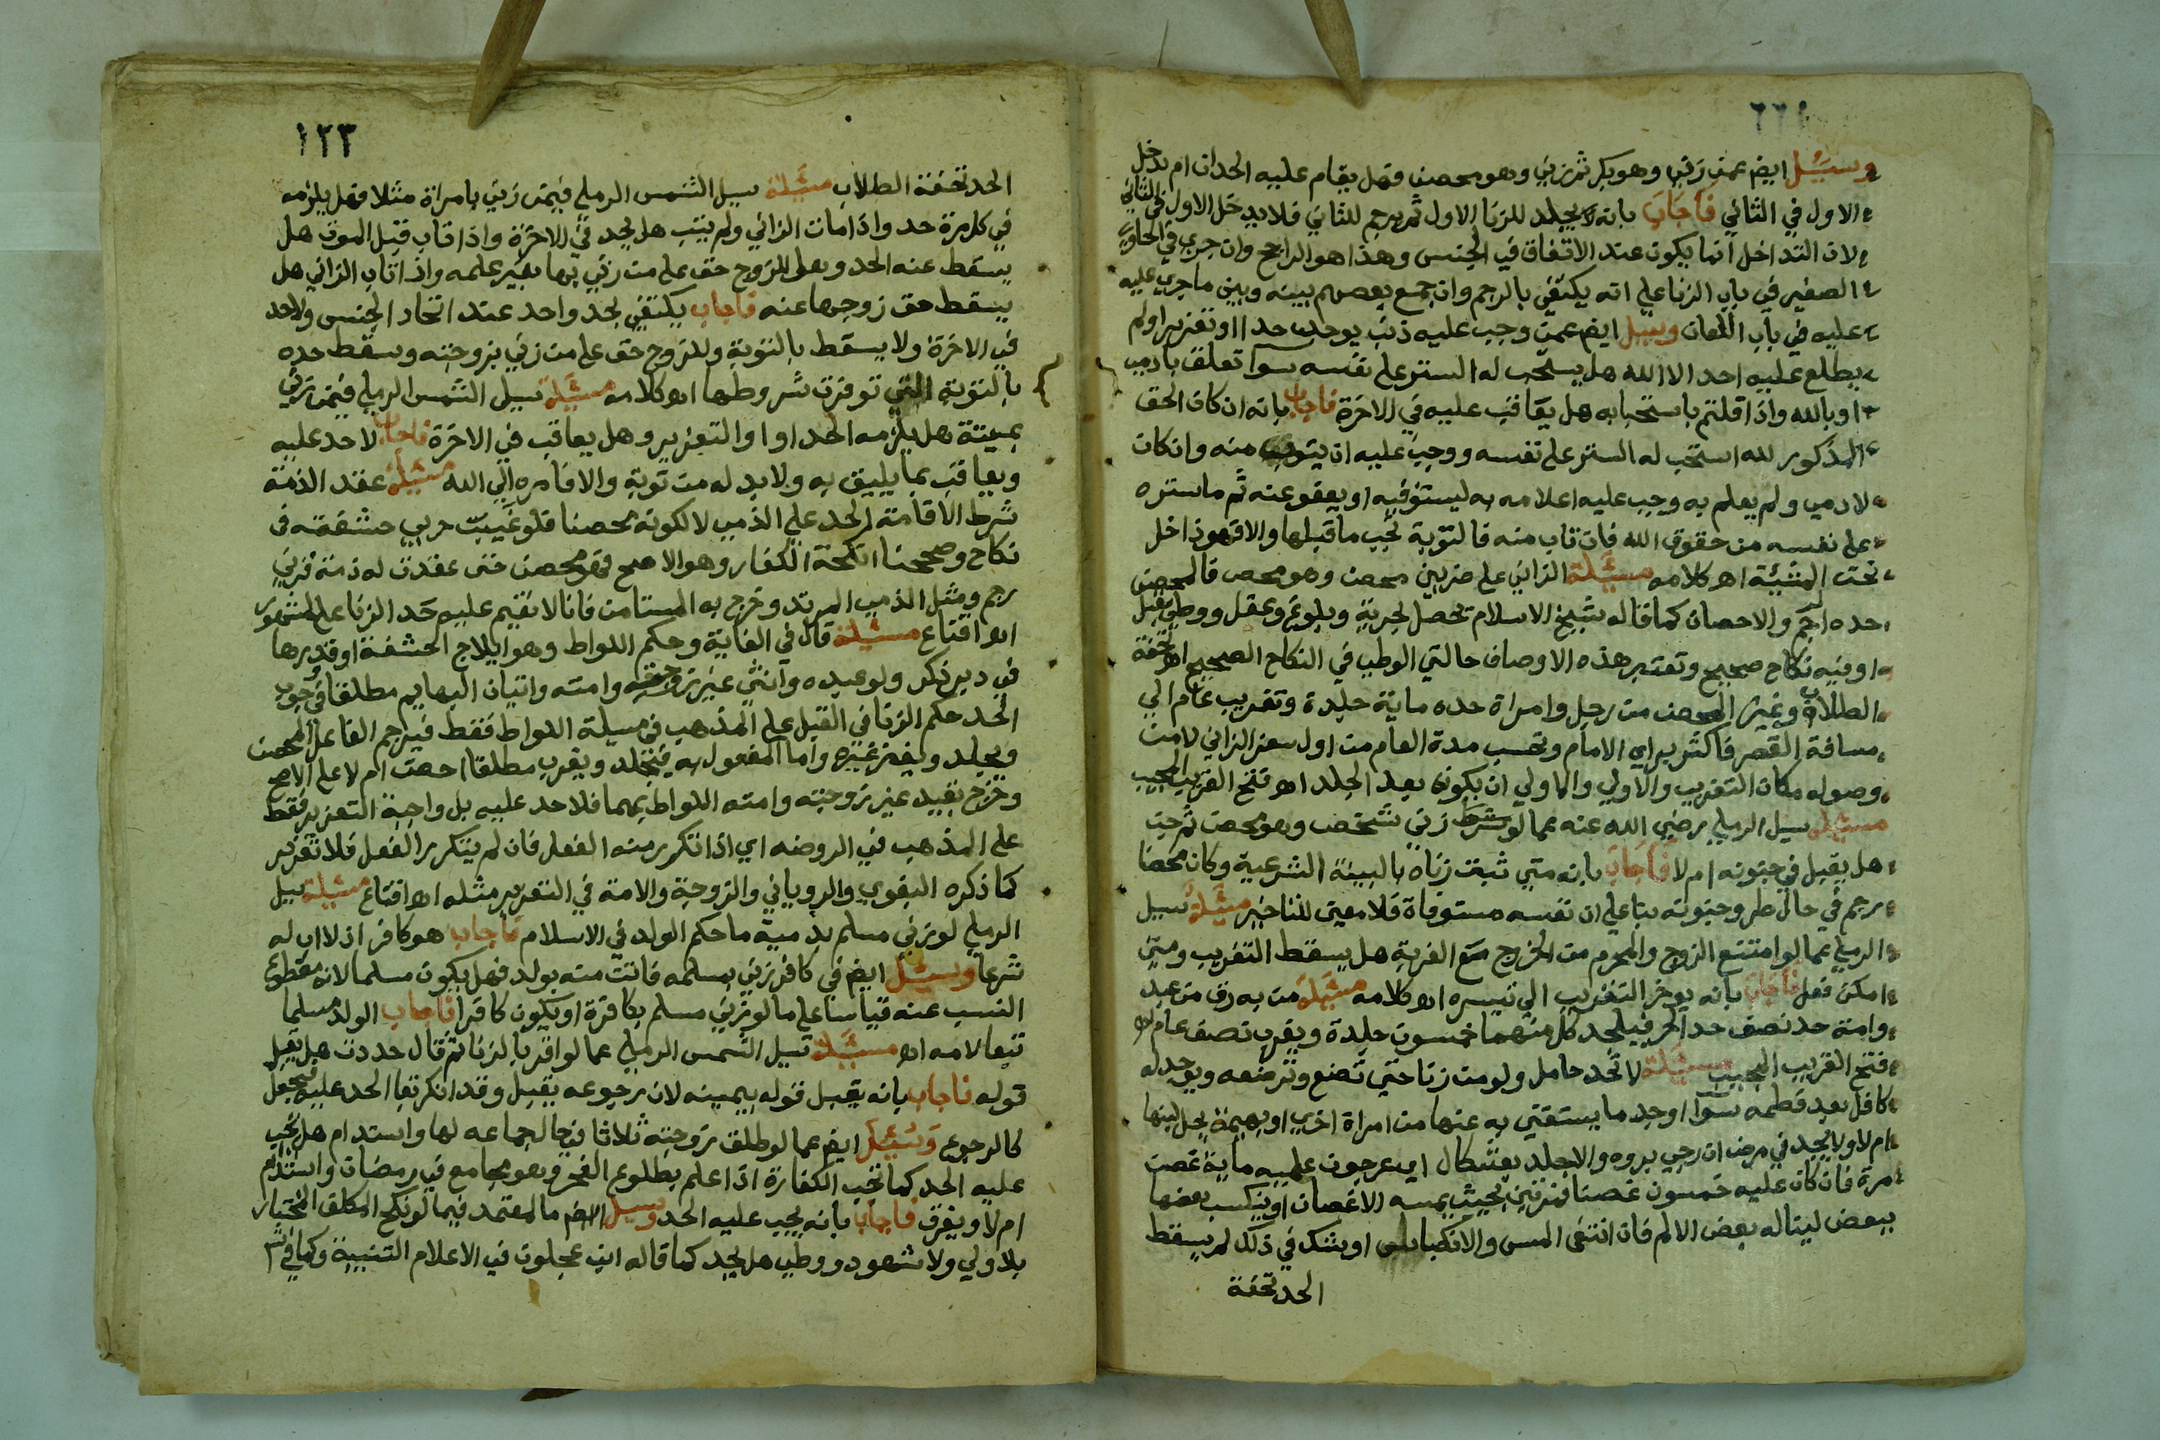 وسيل ايضا عمن زني وهو بكر ثم زني وهو محصن فهل يقام عليه الحدان ام يدخل
الاول في الثاني فاجاب بانه يجلد للزنا الاول ثم يرجم للثاني فلا يدخل الاول في الثاني
لان التداخل انما يكون عند الاتفاق في الجنس وهذا هو الراجح وان جري في الحاوي
الصغير في باب الزنا علي انه يكتفي بالرجم وان جمع بعضهم بينه وبين ما جري عليه
عليه في باب اللعان وسيل ايضا عمن وجب عليه ذنب يوجب حدا او تعزيرا ولم
يطلع عليه احد الا الله هل يستحب له الستر علي نفسه سوا تعلق بادمي
او بالله واذا قلتم باستحبابه هل يعاقب عليه في الاخرة فاجاب بانه ان كان الحق
المذكور لله استحب له الستر علي نفسه ووجب عليه ان يتوب منه وان كان
لادمي ولم يعلم به وجب عليه اعلامه به ليستوفيه او يعفو عنه ثم ما ستره
علي نفسه من حقوق الله فان تاب منه فالتوبة تجب ما قبلها والا فهو داخل
تحت المشيئة اه كلامه مسيلة الزاني علي ضربين محصن وهو محصن فالمحصن
حده الرجم والاحصان كما قاله شيخ الاسلام تحصل بحرية وبلوغ وعقل ووطي بقبل
او فيه نكاح صحيح وتعتبر هذه الاوصاف حالتي الوطي في النكاح الصحيح اه تحفة
الطلاب وغير المحصن من رجل وامراة حده ماية جلدة وتغريب عام الي
مسافة القصر فاكثر براي الامام وتحسب مدة العام من اول سفر الزاني لا من
وصوله مكان التغريب والاولي والاولي ان يكون بعد الجلد اه فتح القريب المجيب
مسيلة سيل الرملي رضي الله عنه عما لو زني شخص وهو محصن ثم جن
هل يقبل في جنونه ام لا فاجاب بانه متي ثبت زناه بالبينة الشرعية وكان محصنا
رجم في حال طرو جنونه بنا علي ان نفسه مستوفاة فلا معني للتاخير مسيلة سيل
الرملي عما لو امتنع الزوج والمحرم من الخروج مع الغربة هل يسقط التغريب ومتي
امكن فعل فاجاب بانه يوخر التغريب الي تيسره اه كلامه مسيلة من به رق من عبد
وامة حد نصف حد الحر فيجلد كل منهما خمسون جلدة ويغرب نصف عام اه
فتح القريب المجيب مسيلة لا تحد حامل ولو من زنا حتي تضع وترضعه ويوجد له
كافل بعد فطمه سوا اوجد ما يستغني به عنها من امراة اخري او بهيمة يحل لبنها
ام لا ولا يجلد في مرض ان رجي بروه والا جلد بعثكال اي عرجون عليه ماية غصن
مرة فان كان عليه خمسون غصنا فمرتين بحيث يمسه الاغصان او ينكبس بعضها
ببعض ليناله بعض الالم فان انتفي المس والانكباس او بشك في ذلك لم يسقط
الحد تحفة
١٢٣
الحد تحفة الطلاب مسيلة سيل الشمس الرملي فيمن زني بامراة مثلا فهل يلزمه
في كل مرة حد واذا مات الزاني ولم يتب هل يحد في الاخرة واذا تاب قبل الموت هل
يسقط عنه الحد وهل للزوج حق علي من زني بها بغير علمه واذا تاب الزاني هل
يسقط حق زوجها عنه فاجاب يكتفي بحد واحد عند اتحاد الجنس ولا حد
في الاخرة ولا يسقط بالتوبة وللزوج حق علي من زني بزوجته وسقط حده
بالتوبة التي توفرت شروطها اه كلامه مسيلة سيل الشمس الرملي فيمن زني
بميتة هل يلزمه الحد او التعزير وهل يعاقب في الاخرة فاجاب لا حد عليه
ويعاقب بما يليق به ولا بد له من توبة والا فامره الي الله مسيلة عقد الذمة
شرط الاقامة الحد علي الذمي لا لكونه محصنا فلو غيبت حربي حشفته في
نكاح وصححنا انكحة الكفار وهو الاصح فهو محصن حتى عقدت له ذمة فزني
رجم ومثل الذمي المرتد وخرج به المستامن فانا لا نقيم عليه حد الزنا علي المشهور
اه اقناع مسيلة قال في الغاية وحكم اللواط وهو ايلاج الحشفة او قدرها
في دبر ذكر ولو عبده وانثي غير زوجته وامته واتيان البهايم مطلقا في وجوب
الحد حكم الزنا في القبل علي المذهب في مسيلة اللواط فقط فيرجم الفاعل المحصن
ويجلد ويغرب غيره واما المفعول به فيجلد ويغرب مطلقا احصن ام لا علي الاصح
وخرج بقيد غير زوجته وامته اللواط بهما فلا حد عليه بل واجبة التعزير فقط
علي المذهب في الروضه اي اذا تكرر منه الفعل فان لم يتكرر الفعل فلا تعزير
كما ذكره البغوي والروياني والزوجة والامة في التعزير مثله اه اقناع مسيلة سيل
الرملي لو زني مسلم بذمية ما حكم الولد في الاسلام فاجاب هو كافر اذ لا اب له
شرعا وسيل ايضا في كافر زني بمسلمه فاتت منه بولد فهل يكون مسلما لانه مقطوع
النسب عنه قياسا علي ما لو زني مسلم بكافرة او يكون كافرا فاجاب الولد مسلما
تبعا لامه اه مسيلة سيل الشمس الرملي عما لو اقر بالزنا ثم قال حددت هل يقبل
قوله فاجاب بانه يقبل قوله بيمينه لان رجوعه يقبل وقد انكر بقا الحد عليه فيجعل
كالرجوع وسيل ايضا عما لو طلق زوجته ثلاثا في حال جماعه لها واستدام هل يجب
عليه الحد كما تجب الكفارة اذا علم بطلوع الفجر وهو مجامع في رمضان واستدام
ام لا ويفرق فاجاب بانه يجب عليه الحد وسيل ايضا ما المعتمد فيما لو نكح المكلف المختار
بلا ولي ولا شهود ووطي هل يحد كما قاله ابن عجلون في الاعلام التنبيه وكما في